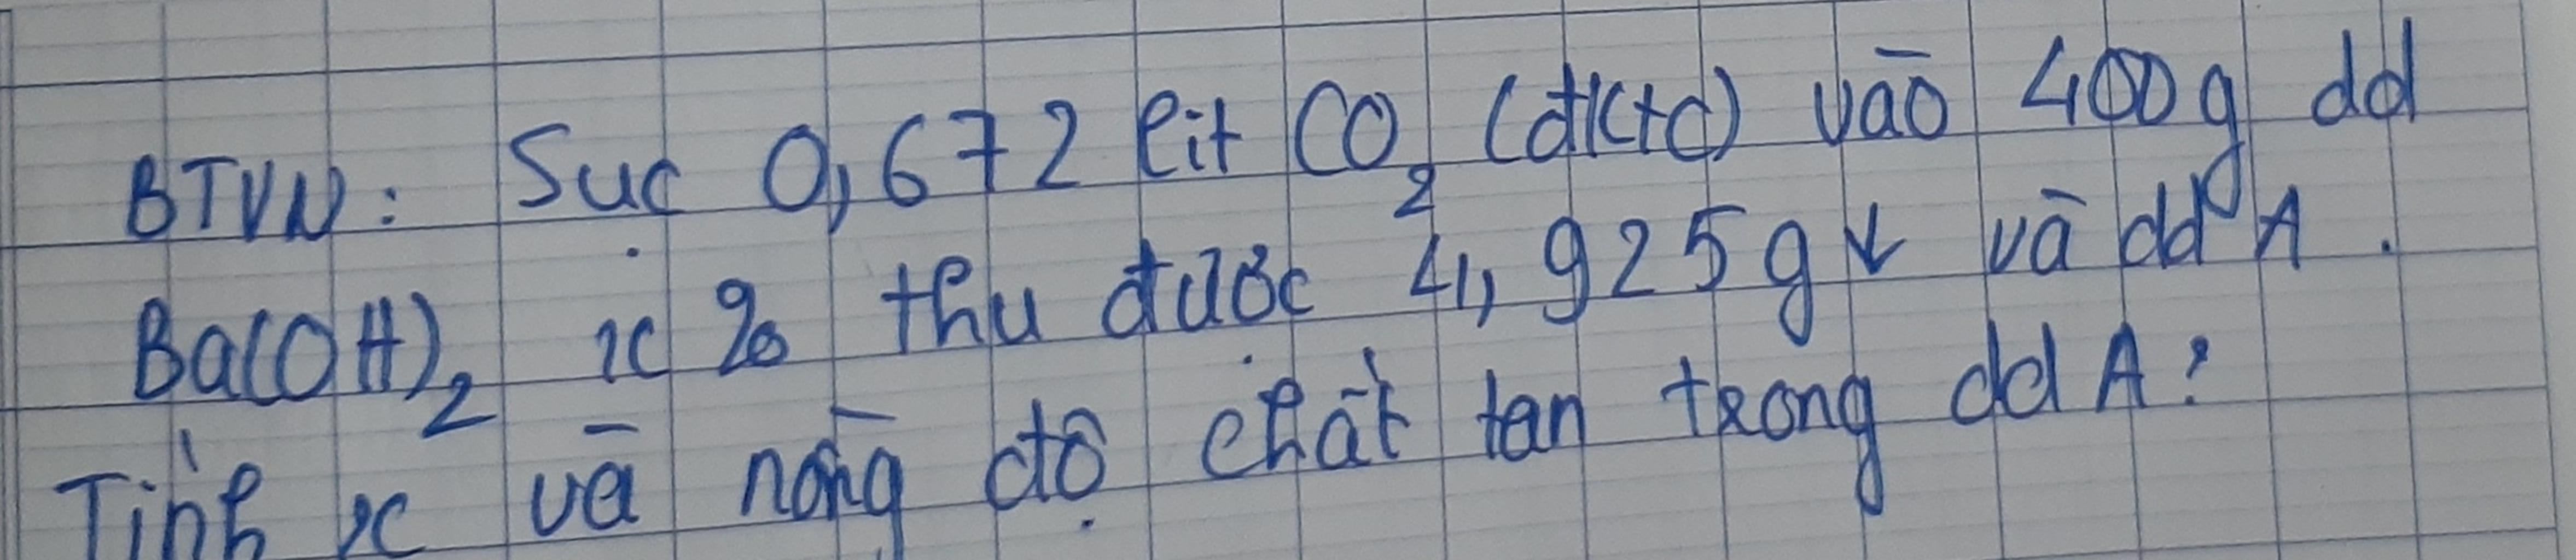 BTVN: Sục 0,672 lit CO2 (đktc) vào 400g dd
Ba(OH)2 x% thu được 4,925g↓ và dd A.
Tính x và nồng độ chất tan trong dd A?